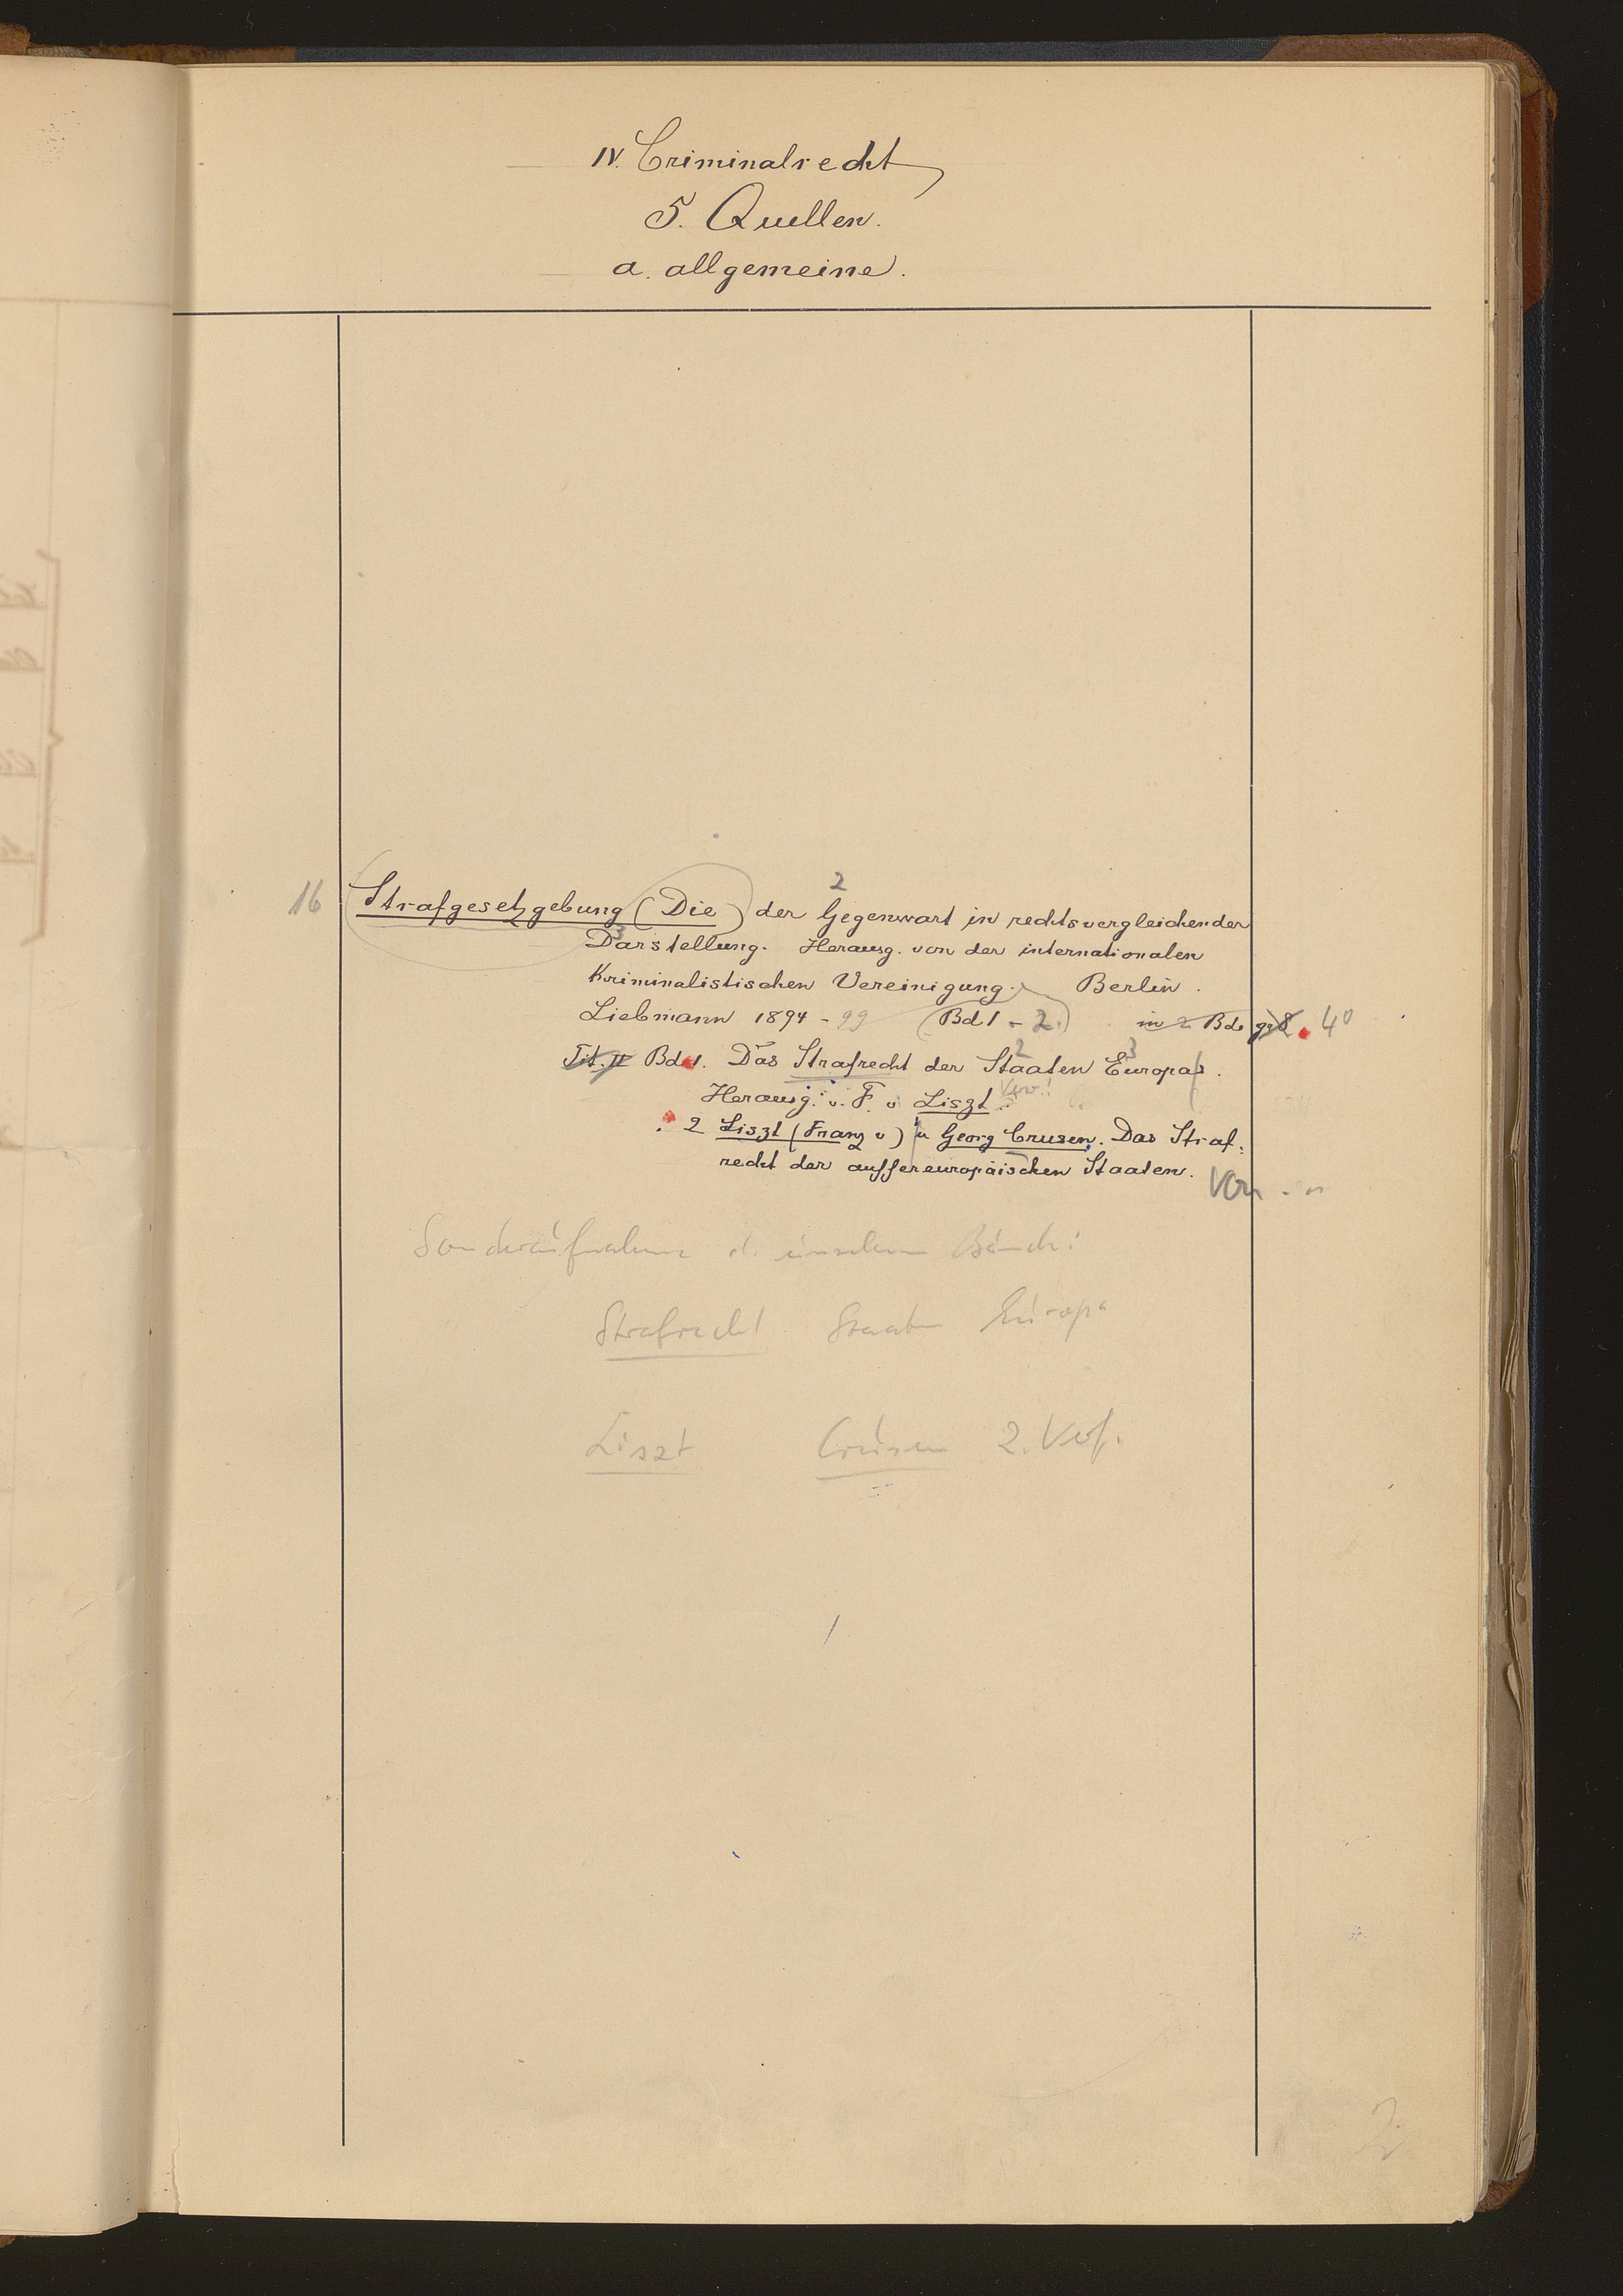 IV. Criminalrecht
5. Quellen.
a. allgemeine.
2
16 Strafgesetzgebung (Die) der Gegenwart in rechtsvergleichender
3
Darstellung. Herausg. von der internationalen
Kriminalistischen Vereinigung. Berlin.
Liebmann 1894-99 (Bd 1-2.) in 2 Bde gr 8. 4°
2 3
Tit. II Bd 1. Das Strafrecht der Staaten Europas.
Herausg. v. F. v Liszt. Verw!
2 Liszt (Franz v) u Georg Crusen. Das Straf-
recht der aussereuropäischen Staaten.
Sonderaufnahme d. einzelnen Bände:
Strafrecht Staaten Europa
Liszt Crusen 2. Verf.